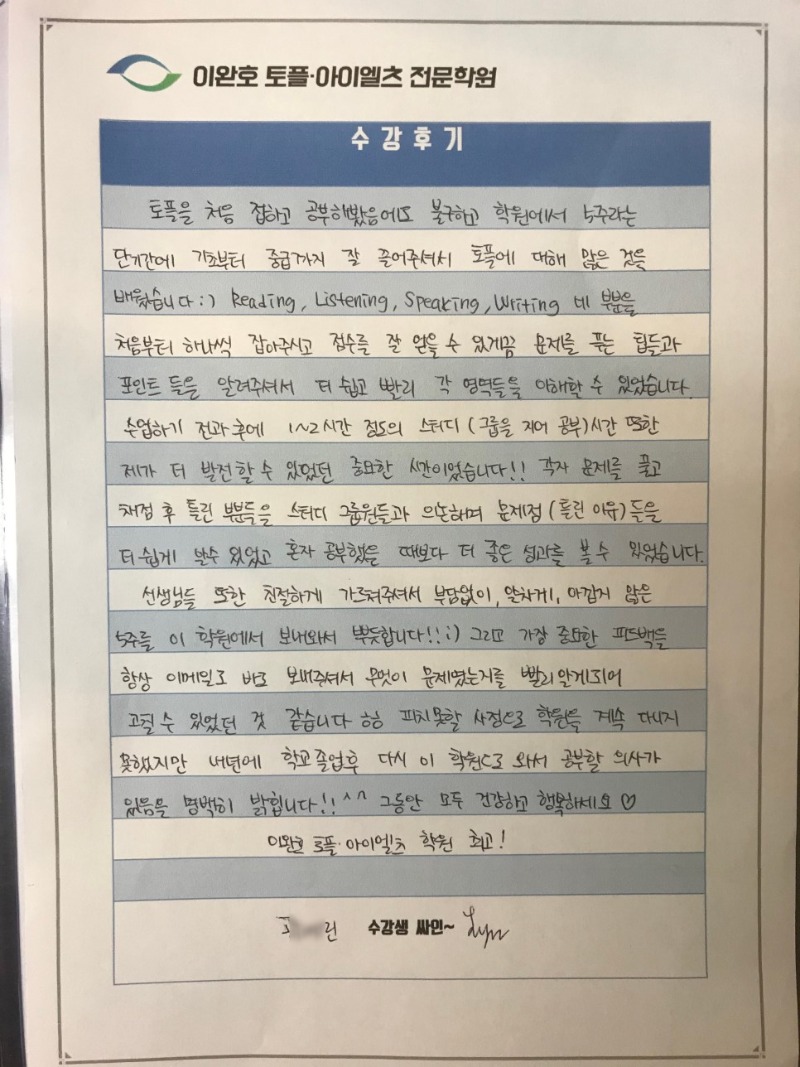 이완호 토플·아이엘츠 전문학원
수강후기
토플을 처음 접하고 공부해봤음에도 불구하고 학원에서 5주라는
단기간에 기초부터 중급까지 잘 끌어주셔서 토플에 대해 많은 것을
배웠습니다:) Reading, Listening, Speaking, Writing 네 부분을
처음부터 하나씩 잡아주시고 점수를 잘 얻을 수 있게끔 문제를 푸는 팁들과
포인트 들을 알려주셔서 더 쉽고 빨리 각 영역들을 이해할 수 있었습니다.
수업하기 전과 후에 1~2시간 정도의 스터디 (그룹을 지어 공부)시간 또한
제가 더 발전할 수 있었던 중요한 시간이었습니다!! 각자 문제를 풀고
채점 후 틀린 부분들을 스터디 그룹원들과 의논하며 문제점 (틀린 이유)들을
더 쉽게 알수 있었고 혼자 공부했을 때보다 더 좋은 성과를 볼 수 있었습니다.
선생님들 또한 친절하게 가르쳐주셔서 부담없이, 알차게, 아깝지 않은
5주를 이 학원에서 보내와서 뿌듯합니다!!:) 그리고 가장 중요한 피드백들
항상 이메일로 바로 보내주셔서 무엇이 문제였는지를 빨리 알게되어
고칠 수 있었던 것 같습니다 ㅎㅎ 피치못할 사정으로 학원을 계속 다니지
못했지만 내년에 학교 졸업후 다시 이 학원으로 와서 공부할 의사가
있음을 명백히 밝힙니다!! ^^ 그동안 모두 건강하고 행복하세요 ♡
이완호 토플·아이엘츠 학원 최고!
린 수강생 싸인~ Lyn